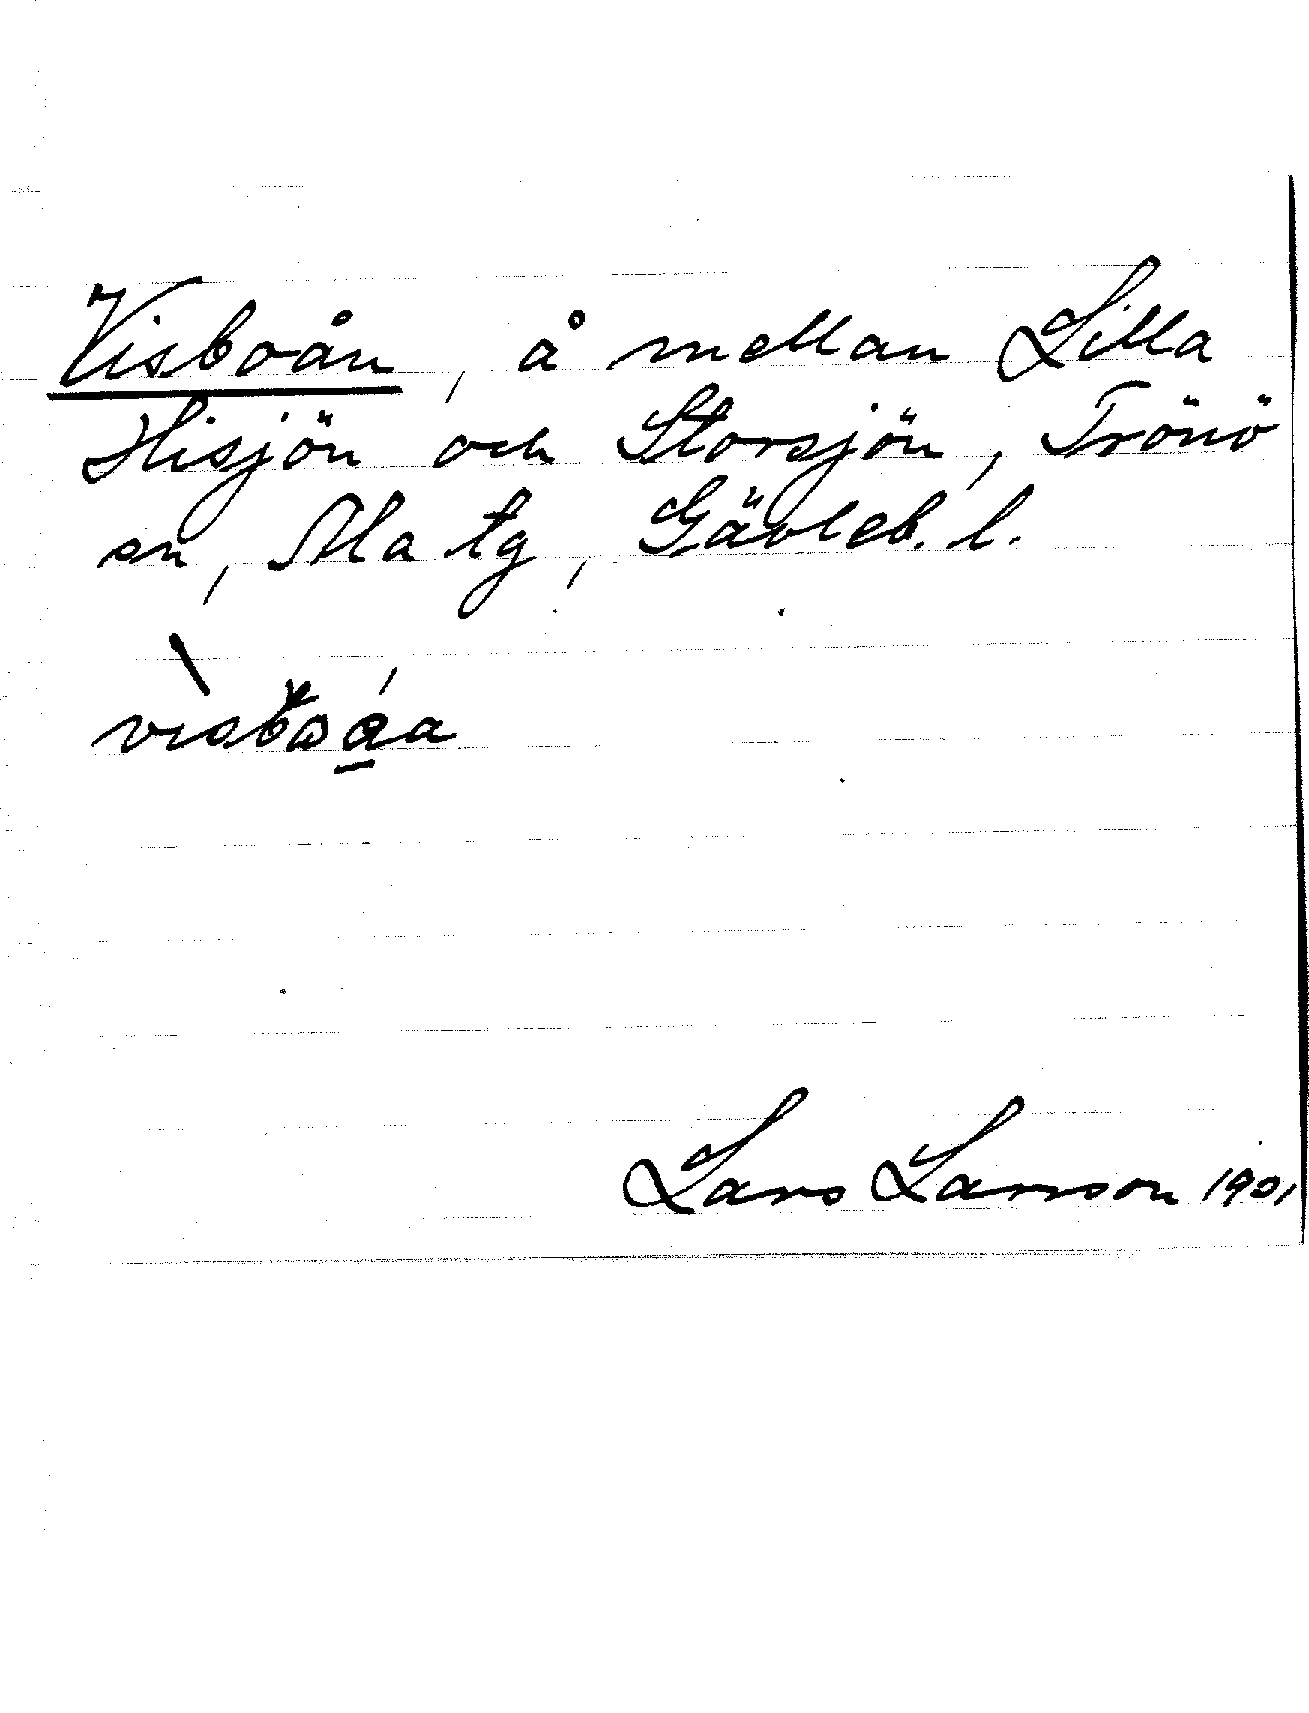 Visboån, å mellan Lilla
Hisjön och Storsjön, Trönö
sn, Ala tg, Gävleb. l.
Lars Larsson 1901